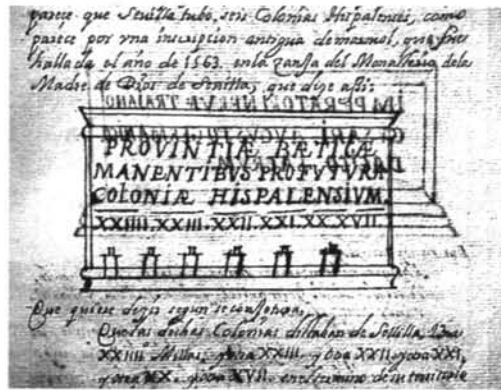 parece que Sevilla tubo, seis Colonias Hispalenses, como
parece por vna inscripcion antigua de marmol, que fue
hallada el año de 1563. en la zanja del Monasterio de la
Madre de Dios de Sevilla, que dize assi:
PROVINTIÆ BÆTICÆ
MANENTIBVS PROFVTVRA
COLONIÆ HISPALENSIVM.
XXIIII. XXIII. XXII. XXI. XX. XVII.
Que quiere dezir segun se
Que las dichas Colonias distaban de Sevilla,
XXIIII Millas, y otra XXIII, y otra XXII, y otra XXI,
y otra XX, y otra XVII. en el termino de su